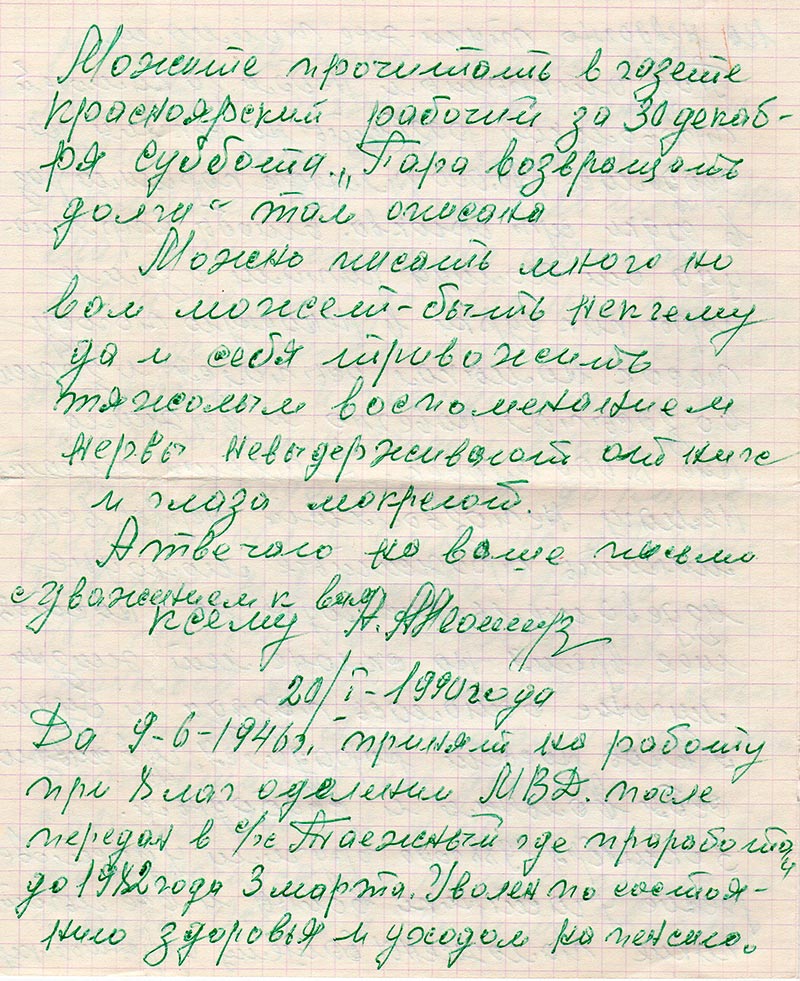 Можите прочитать в газете
красноярский рабочий за 30 декаб-
ря суббота. „Пара возвращать
долги“ там описана
Можно писать много но
вам может-быть некчему
да и себя тривожить
тяжолым воспоменанием
нервы невыдерживают от них
и глаза мокреют.
Атвечаю на ваше письмо
с уважением к вам
ксему А.
20/I-1990 года
Да 9-6-1946г. принят на работу
при 8 лаг отделении МВД. после
передан в с/х Таежный где праработал
до 1982 года 3 марта. Уволен по состоя-
нию здоровья и уходом на пенсию.